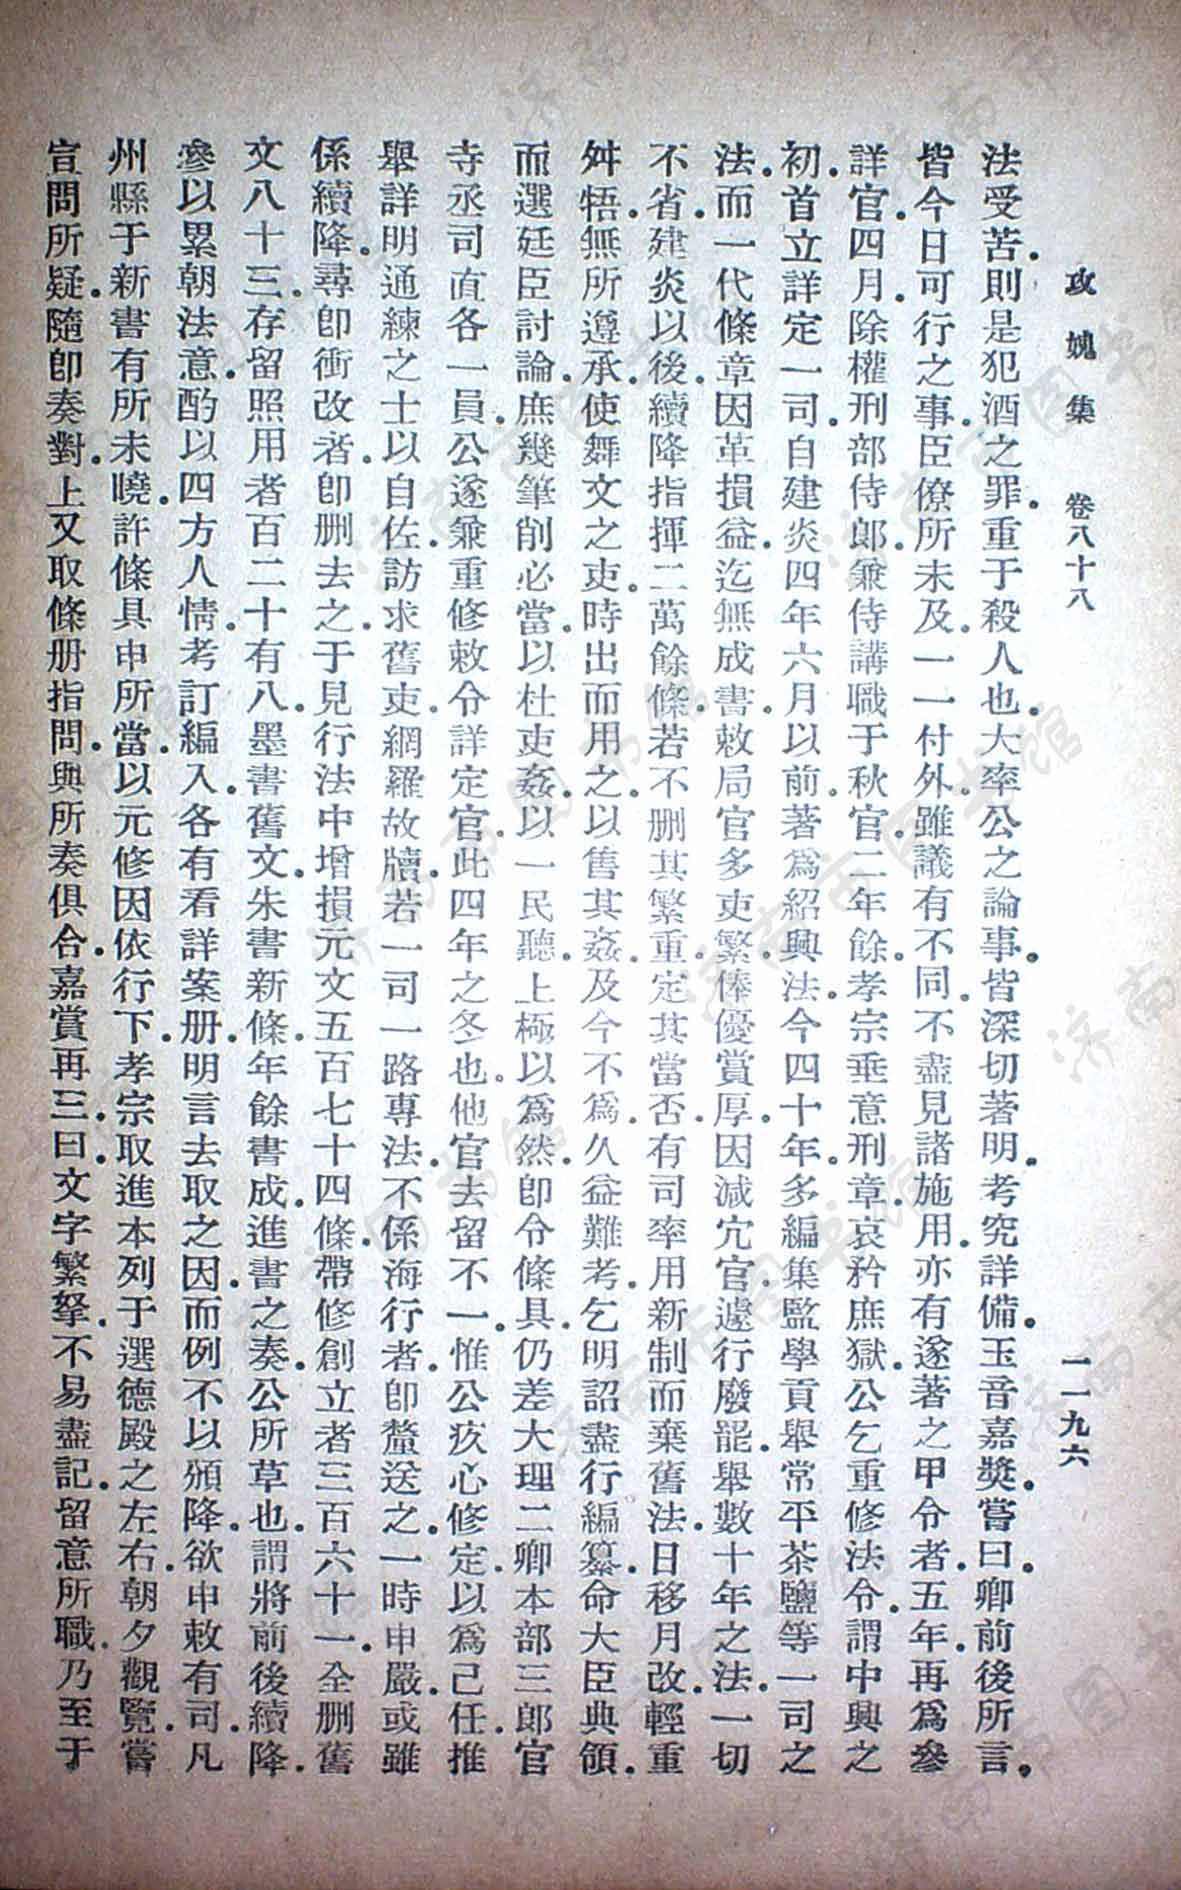 攻媿集　卷八十八　一一九六
法受苦.則是犯酒之罪.重于殺人也.大率公之論事.皆深切著明.考究詳備.玉音嘉獎.嘗曰.卿前後所言.
皆今日可行之事.臣僚所未及.一一付外.雖議有不同.不盡見諸施用.亦有遂著之甲令者.五年.再爲參
詳官.四月.除權刑部侍郎.兼侍講職于秋官.二年餘.孝宗垂意刑章.哀矜庶獄.公乞重修法令.謂中興之
初.首立詳定一司.自建炎四年六月以前.著爲紹興法.今四十年.多編集監學貢舉常平茶鹽等一司之
法.而一代條章.因革損益.迄無成書.敕局官多吏繁.俸優賞厚.因減冗官.遽行廢罷.舉數十年之法.一切
不省.建炎以後.續降指揮.二萬餘條.若不刪其繁重.定其當否.有司率用新制而棄舊法.日移月改.輕重
舛牾.無所遵承.使舞文之吏.時出而用之.以售其姦.及今不爲.久益難考.乞明詔盡行編纂.命大臣典領.
而選廷臣討論.庶幾筆削必當.以杜吏姦.以一民聽.上極以爲然.卽令條具.仍差大理二卿本部三郎官
寺丞司直各一員.公遂兼重修敕令詳定官.此四年之冬也.他官去留不一.惟公疚心修定.以爲己任.推
舉詳明通練之士以自佐.訪求舊吏.網羅故牘.若一司一路專法.不係海行者.卽釐送之.一時申嚴.或雖
係續降.尋卽衝改者.卽刪去之.于見行法中增損元文五百七十四條.帶修創立者三百六十一.全刪舊
文八十三.存留照用者百二十有八.墨書舊文.朱書新條.年餘書成.進書之奏.公所草也.謂將前後續降.
參以累朝法意.酌以四方人情.考訂編入.各有看詳案册.明言去取之因.而例不以頒降.欲申敕有司.凡
州縣于新書有所未曉.許條具申所當.以元修因依行下.孝宗取進本列于選德殿之左右.朝夕觀覽.嘗
宣問所疑.隨卽奏對.上又取條册指問.與所奏俱合.嘉賞再三.曰.文字繁拏.不易盡記.留意所職.乃至于